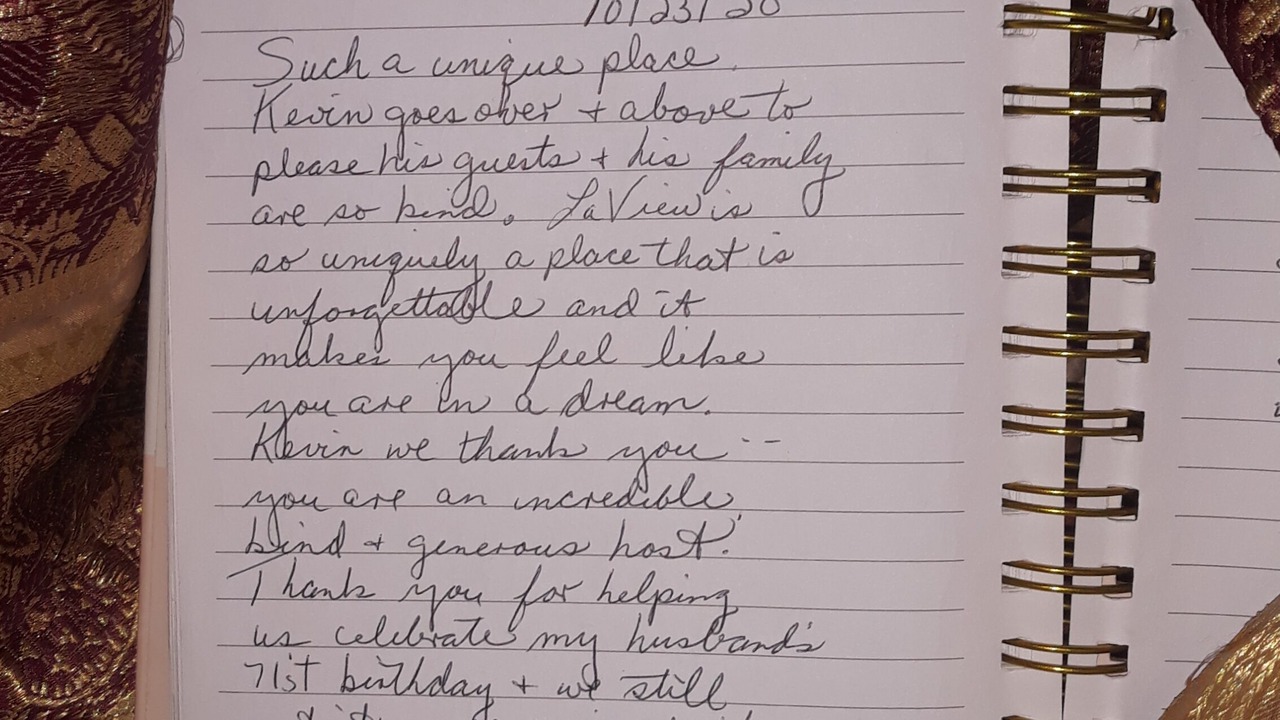 10/23/20
Such a unique place.
Kevin goes over + above to
please his guests + his family
are so kind. La View is
so uniquely a place that is
unforgettable and it
makes you feel like
you are in a dream.
Kevin we thank you --
you are an incredible,
kind + generous host.
Thank you for helping
us celebrate my husband's
71st birthday + we still